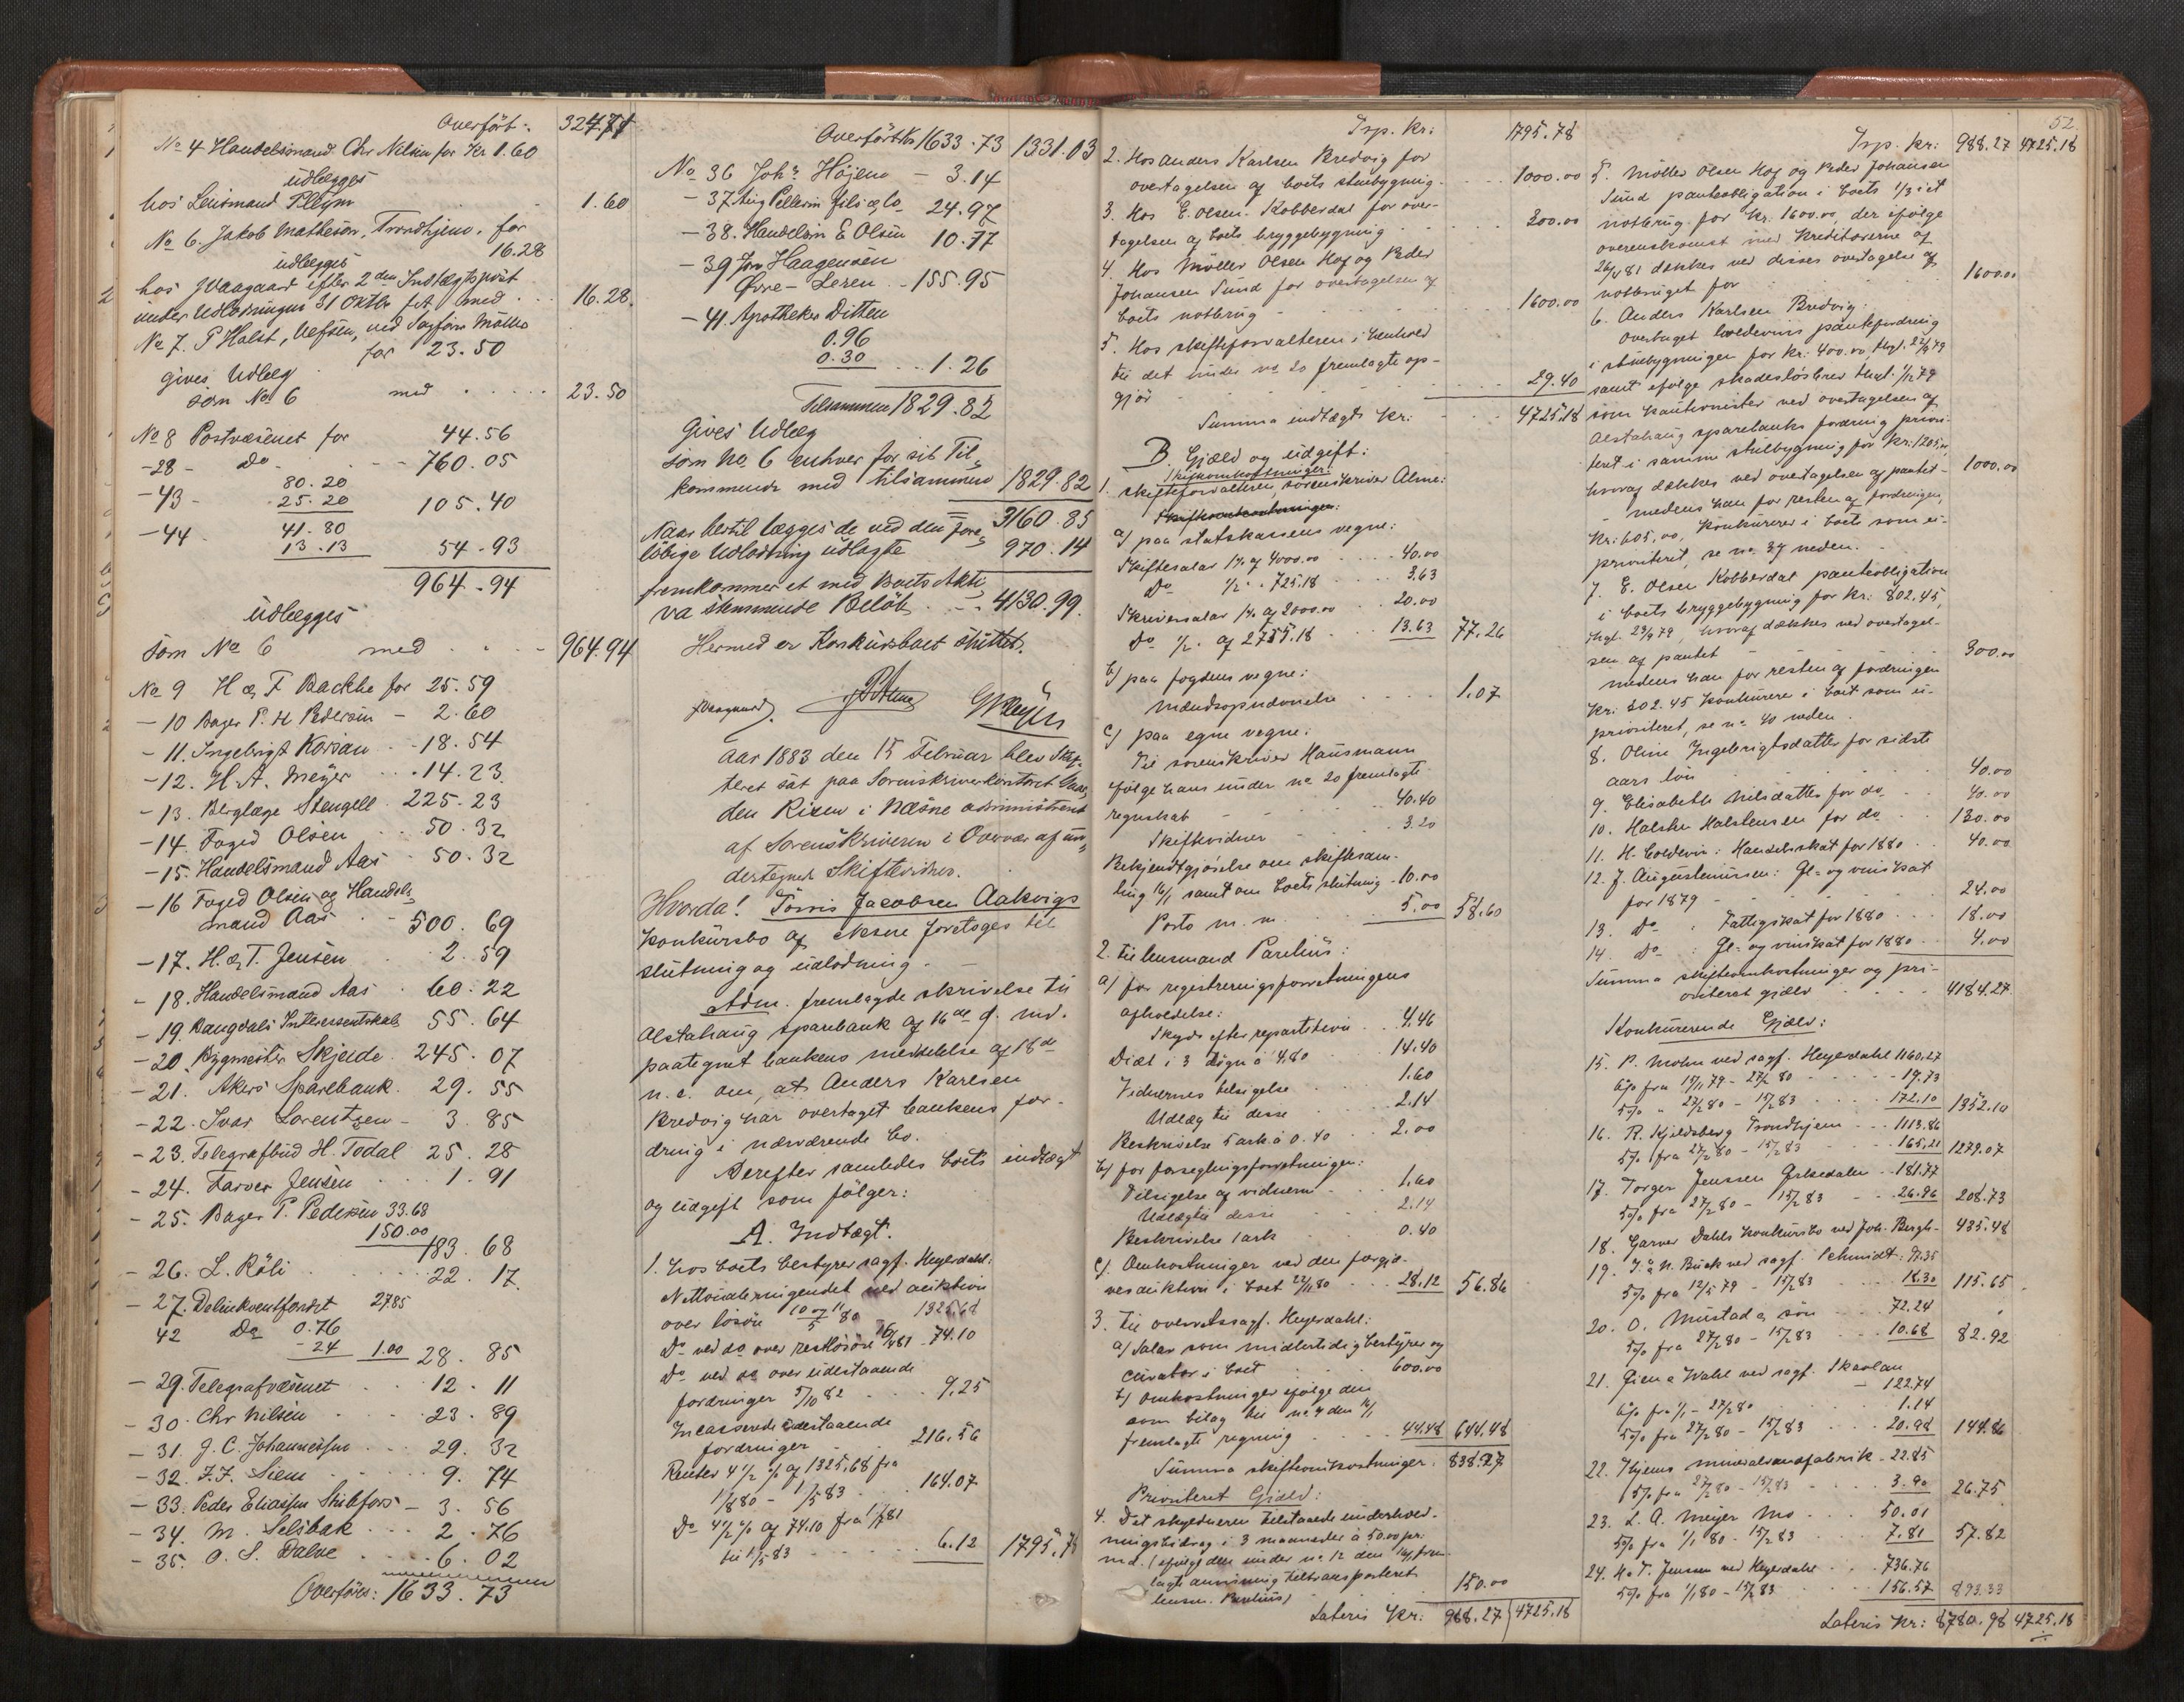 Overført:. 324.71
No 4 Handelsmand Chr Nilsen for Kr 1.60
udlægges
hos Lensmand Pleym 1.60
No 6. Jakob Matheson, Trondhjem, for
16.28
udlægges
hos JVaagaard efter 2den Indtægtspost
under Udlodningen 31 Oktbr ft med 16.28.
No 7. P Holst, Vefsen, ved Sagfører Møller
for 23.50
gives Udlæg
som No 6 med 23.50
No 8 Postvæsenet for 44.56
-28- Do - 760.05
-43- 80.20
25.20 105.40
-44 41.80
13.13 54.93
964.94
udlægges
som No 6 med 964.94
No 9 H & F Backhe for 25.59
- 10 Bager P. H Pedersen - 2.60
- 11. Ingebrigt Korsan - 18.54
- 12. H. A. Meyer 14.23.
- 13. Berglæge Stengell 225.23
- 14. Foged Olsen 50.32
- 15. Handelsmand Aas 50.32
- 16 Foged Olsen og Handels,
mand Aas 500.69
- 17. H. & T. Jensen 2.59
- 18. Handelsmand Aas 60.22
- 19. Ranadals Interessentskab 55.64
- 20. Bygmester Skjelde 245.07
- 21. Akers Sparebank. 29.55
- 22. Ivar Lorentzen - 3.85
- 23. Telegrafbud H. Todal 25.28
- 24. Farver Jensen 1.91
- 25. Bager P. Pedersen 33.68
150.00
183.68
- 26. L. Röli 22.17
- 27. Delinkventfondet 27.85
42 Do 0.76
- 24 1.00 28.85
- 29. Telegrafvæsenet 12.11
- 30. Chr Nilsen 23.89
- 31. J. C. Johannessen 29.32
- 32. F. F. Siem 9.74
- 33. Peder Eliassen Stilfors - 3.56
- 34. M. Selsbak 2.76
- 35. O. S. Dalve 6.02
Overføres: 1633.73
Overført Kr 1633.73 1331.03
No 36 Johs Høјem - 3.14
- 37 Aug Pellerin fils & Co 24.97
- 38. Handelsm E Olsen 10.77
- 39 Jon Haagensen
Øvre-Leren 155.95
- 41. Apotheker Ditten
0.96
0.30 1.26
Tilsammen 1829.82
Gives Udlæg
som No. 6 enhver for sit Til,
kommende med tilsammen 1829.82
3160.85
Naar hertil lægges de ved den fore,
løbige Udlodning udlagte 970.14
fremkommer et med Boets Akti,
va stemmende Beløb 4130.99.
Hermed er Konkursboet sluttet.
JVaagaard.
Aar 1883 den 15 Februar blev Skif,
teret sat paa Sorenskriverkontoret Gaar,
den Risen i Næsne administreret
af Sorenskriveren i Overvær af un,
dertegnede Skiftevidner.
Hvorda! Tönis Jacobsen Aakvigs
konkursbo af Næsne foretoges til
slutning og udlodning.
Adm. fremlagde skrivelse til
Alstahaug sparebank af 16de f. md.
paategnet bankens meddelelse af 18de
n.s. om, at Anders Karlsen
Bredvig har overtaget bankens for-
dring i nærværende bo.
Derefter samledes boets indtægt
og udgift som følger:
A. Indtægt.
1. hos boets bestyrer sagf. Heyerdahl:
Nettoudbringendet ved auktion
over løsøre 10 og 11/5 80 1325.68
Do ved do over restløsøre 16/7 81 74.10
Do ved do over udestaaende
fordringer 5/10 82 9.25
Incasserede udestaaende
fordringer 216.56
Renter 4 1/2 % af 1325.68 fra
1/8 80 - 1/5 83 164.07
Do 4 1/2 % af 74.10 fra 1/7 81
til 1/5 83 6.12 1795.78
Tsp. Kr: 1795.78
2. Hos Anders Karlsen Bredvig for
overtagelsen af boets stuebygning 1000.00
3. Hos E. Olsen Kobberdal for over-
tagelsen af boets bryggebygning 300.00
4. Hos Möller Olsen Hof og Peder
Johansen Sund for overtagelsen af
boets notbrug 1600.00
5. Hos skifteforvalteren i henhold
til det under no 20 fremlagte op-
gjør 29.40
Summa indtægt Kr: 4725.18
B. Gjæld og udgift:
Skifteomkostninger:
1. skifteforvalteren, sorenskriver Alme:
Skifteomkostninger:
a) paa statskassens vegne:
Skiftesalar 1% af 4000.00 40.00
Do 1/2 " " 725.18 3.63
Skriversalar 1% af 2000.00 20.00
Do 1/2 " af 2725.18 13.63 77.26
b) paa fogdens vegne:
Mandsopnævnelse 1.07
c) paa egne vegne:
Til sorenskriver Hausmann
ifølge hans under no 20 fremlagte
regnskab 40.40
Skiftevidner 3.20
Bekjendtgjørelse om skiftesam-
ling 16/1 samt om boets slutning 10.00
Porto m. m. 5.00 58.60
2. til lensmand Parelius:
a) for registreringsforretningens
afholdelse:
Skyds efter repartition 4.46
Diæt i 3 døgn á 4.80 14.40
Vidnernes tilsigelse 1.60
Udlæg til disse 2.14
Beskrivelse 5 ark á 0.40 2.00
b) for forseglingsforretningen:
Tilsigelse af vidnerne 1.60
Udlæg til disse 2.14
Beskrivelse 1 ark 0.40
c) Omkostninger ved den forgjæ-
ves auktion i boet 22/11 80 28.12 56.86
3. til overretssagf. Heyerdahl:
a) Salar som midlertidig bestyrer og
curator i boet 600.00
b) Omkostninger ifølge den
som bilag til no 4 den 16/1
fremlagte regning 44.48 644.48
Summa skifteomkostninger. 838.27
Prioriteret Gjæld:
4. Det skyldneren tilstaaede underhold-
ningsbidrag i 3 maaneder á 50.00 pr.
md. (ifølge den under no 12 den 16/1 frem-
lagte anvisning tiltransporteret
lensm. Parelius) 150.00
Lateris Kr: 988.27 4725.18
52
Tsp. Kr: 988.27 4725.18
5. Möller Olsen Hof og Peder Johansen
Sund panteobligation i boets 1/3 i et
notbrug for Kr. 1600.00, der ifølge
overenskomst med kreditorerne af
26/4 81 dækkes ved disses overtagelse af
notbruget for 1600.00
6. Anders Karlsen Bredvig:
Overtaget Coldevins pantefordring
i stuebygningen for Kr: 400.00, thgl. 22/9 79
samt ifølge skadesløsbrev thgl. 1/12 79
som kautionister ved overtagelsen af
Alstahaug sparebanks fordring priori-
teret i samme stuebygning for Kr: 1205,00
hvoraf dækkes ved overtagelsen af pantet 1000.00
medens han for resten af fordringen,
Kr: 605,00, konkurerer i boet som ei-
prioriteret, se no. 39 neden.
7. E. Olsen Kobberdal panteobligation
i boets bryggebygning for Kr: 802,45,
thgl. 23/9 79, hvoraf dækkes ved overtagel-
sen af pantet 300.00
medens han for resten af fordringen
Kr: 502.45 konkurerer i boet som ei-
prioriteret, se no. 40 neden.
8. Oline Ingebrigtsdatter for sidste
aars løn 40.00
9. Elisabeth Nilsdatter for do 40.00
10. Halsten Halstensen for do 130.00
11. H. Coldevin: Handelsskat for 1880 40.00
12. J. Augustinussen: Øl- og vinskat
for 1879 24.00
13. Do Fattigskat for 1880 18.00
14. Do Øl- og vinskat for 1880 4.00
Summa skifteomkostninger og pri-
oriteret gjæld 4184.27
Konkurerende Gjæld:
15. P. Mohn ved sagf. Heyerdahl 1160.27
6% fra 19/11 79 - 27/2 80 19.73
5% " 27/2 80 - 15/2 83 172.10 1352.10
16. R. Kjeldsberg Trondhjem 1113.86
5% fra 27/2 80 - 15/2 83 165.21 1279.07
17. Torger Jenssen Gulsedalen 181.77
5% fra 27/2 80 - 15/2 83 26.96 208.73
18. Garver Dahls konkursbo ved Joh. Bergh- 435.48
19. J. & N. Buck ved sagf. Schmidt: 97.35
5% fra 12/5 79 - 15/2 83 18.30 115.65
20. O. Mustad & søn 72.24
5% fra 27/2 80 - 15/2 83 10.68 82.92
21. Giem & Wahl ved sagf. Skavlan
122.74
6% fra 1/1 - 27/2 80 1.14
5% fra 27/2 80 - 15/2 83 20.98 144.86
22. Thjems mineralvandfabrik 22.85
5% fra 27/2 80 - 15/2 83 3.90 26.75
23. L. A. Meyer Mo 50.01
5% fra 1/1 80 - 15/2 83 7.81 57.82
24. H & T. Jenssen ved Heyerdahl 736.76
5% fra 1/1 80 - 15/2 83 156.57 893.33
Lateris Kr: 8780.98 4725.18